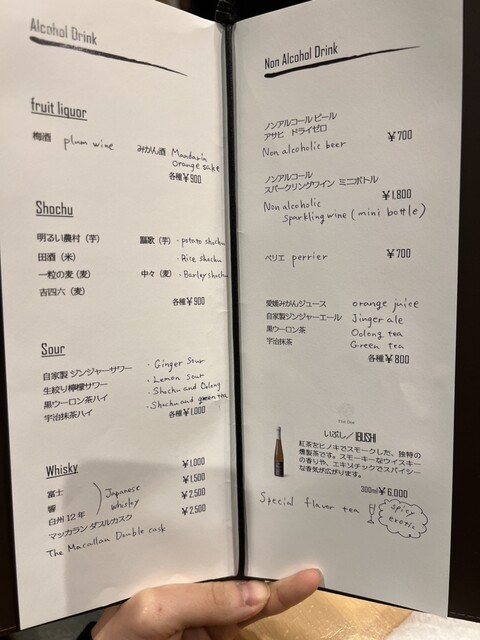 Alcohol Drink
fruit liquor
梅酒 plum wine
みかん酒 Mandarin
orange sake
各種¥900
Shochu
明るい農村（芋）
謳歌（芋） - potato shochu
田酒（米）
- Rice shochu
一粒の麦（麦）
中々（麦） - Barley shochu
吉四六（麦）
各種¥900
Sour
自家製 ジンジャーサワー ・Ginger sour
生絞り檸檬サワー ・Lemon sour
黒ウーロン茶ハイ ・Shochu and Oolong
宇治抹茶ハイ ・Shochu and green tea
各種¥1,000
Whisky
¥1,000
富士 ¥1,500
響 Japanese
whisky ¥2,500
白州 12 年 ¥2,500
マッカラン ダブルカスク
The Macallan Double cask
Non Alcohol Drink
ノンアルコール ビール
アサヒ ドライゼロ ¥700
Non alcoholic beer
ノンアルコール
スパークリングワイン ミニボトル
¥1,800
Non alcoholic
sparkling wine (mini bottle)
ペリエ perrier ¥700
愛媛みかんジュース orange juice
自家製ジンジャーエール Jinger ale
黒ウーロン茶 Oolong tea
宇治抹茶 Green tea
各種 ¥800
いぶし／IBUSHI
紅茶をヒノキでスモークした、独特の
燻製茶です。スモーキーなウイスキー
の香りや、エキゾチックでスパイシー
な香気が広がります。
300ml¥6,000
Special flavor tea
spicy
erotic